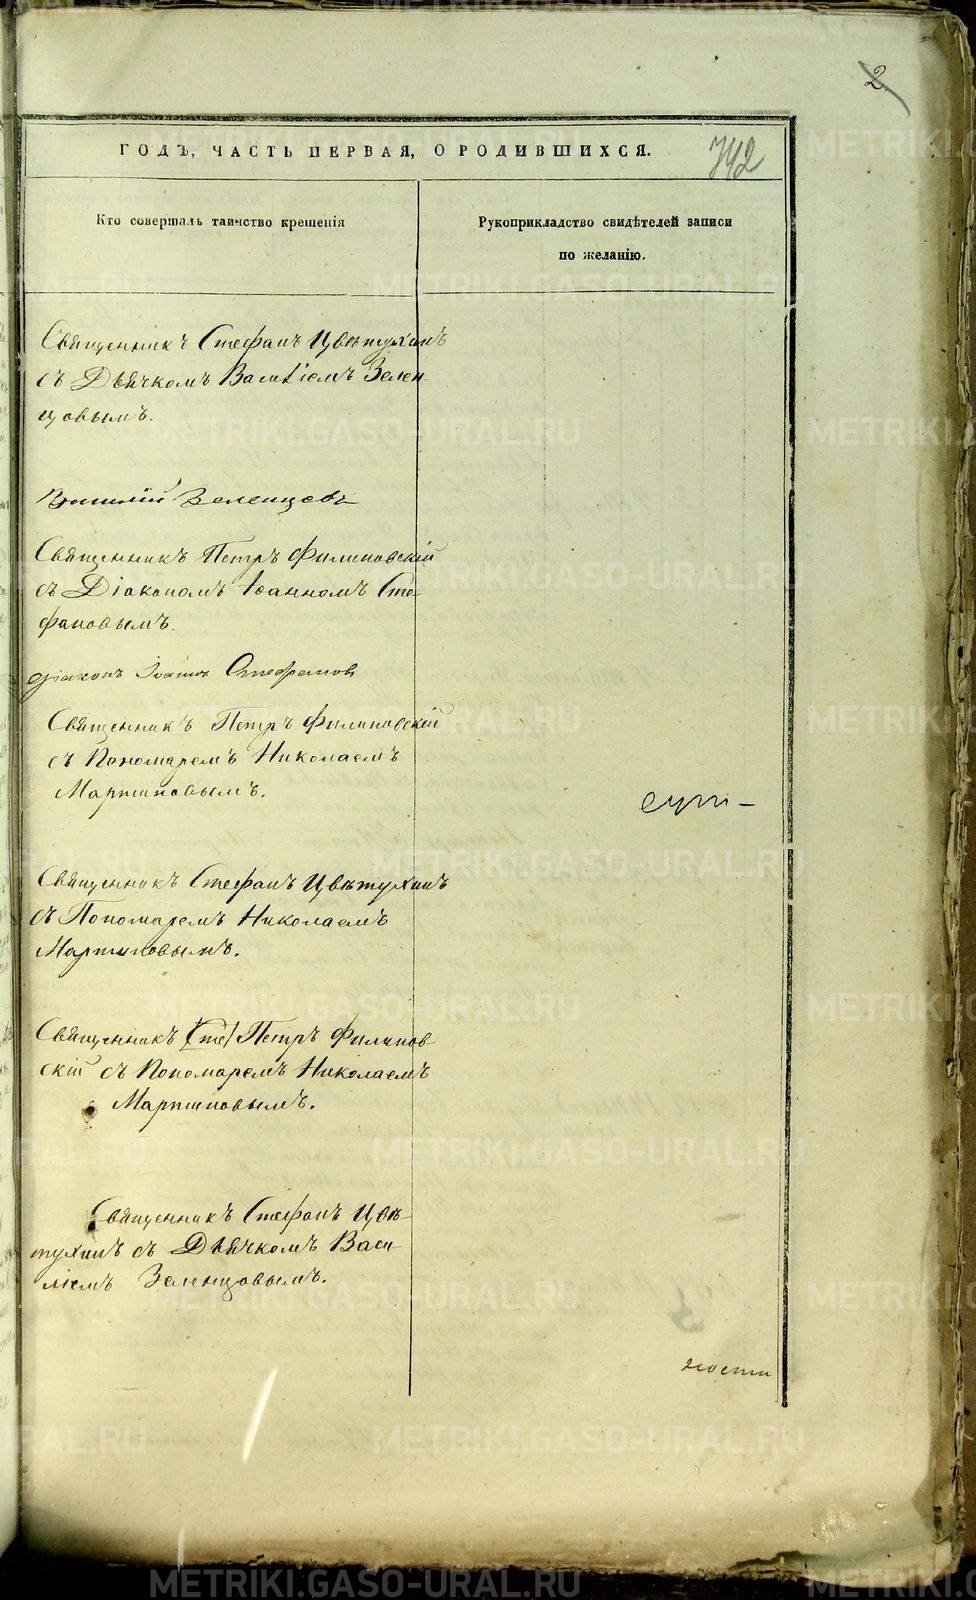 2
ГОДЪ, ЧАСТЬ ПЕРВАЯ, О РОДИВШИХСЯ.
742
Кто совершалъ таинство крещенія
Рукоприкладство свидѣтелей записи
по желанію.
Священникъ Стефанъ Цвѣтухинъ
съ Дьячкомъ Василіемъ Зелен
цовымъ.
Василій Зеленцовъ
Священникъ Петръ Филиповскій
съ Діакономъ Іоанномъ Сте
фановымъ.
Діаконъ Іоаннъ Стефановъ
Священникъ Петръ Филиповскій
съ Пономаремъ Николаемъ
Мартиновымъ.
Священникъ Стефанъ Цвѣтухинъ
съ Пономаремъ Николаемъ
Мартиновымъ.
Священникъ (Сте) Петръ Филипов
скій съ Пономаремъ Николаемъ
Мартиновымъ.
Священникъ Стефанъ Цвѣ
тухинъ съ Дьячкомъ Васи
ліемъ Зеленцовымъ.
ности
METRIKI.GASO-URAL.RU